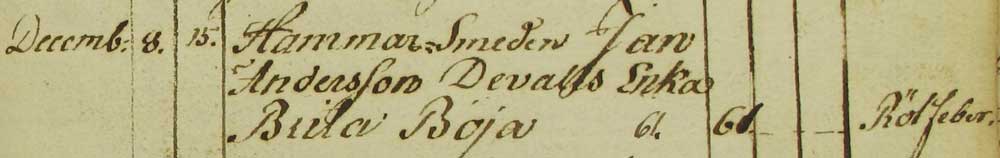 Decemb: 8. 15. Hammar-Smeden Jan
Andersson Devalls Enka
Brita Böja 61. 61. Rötfeber.